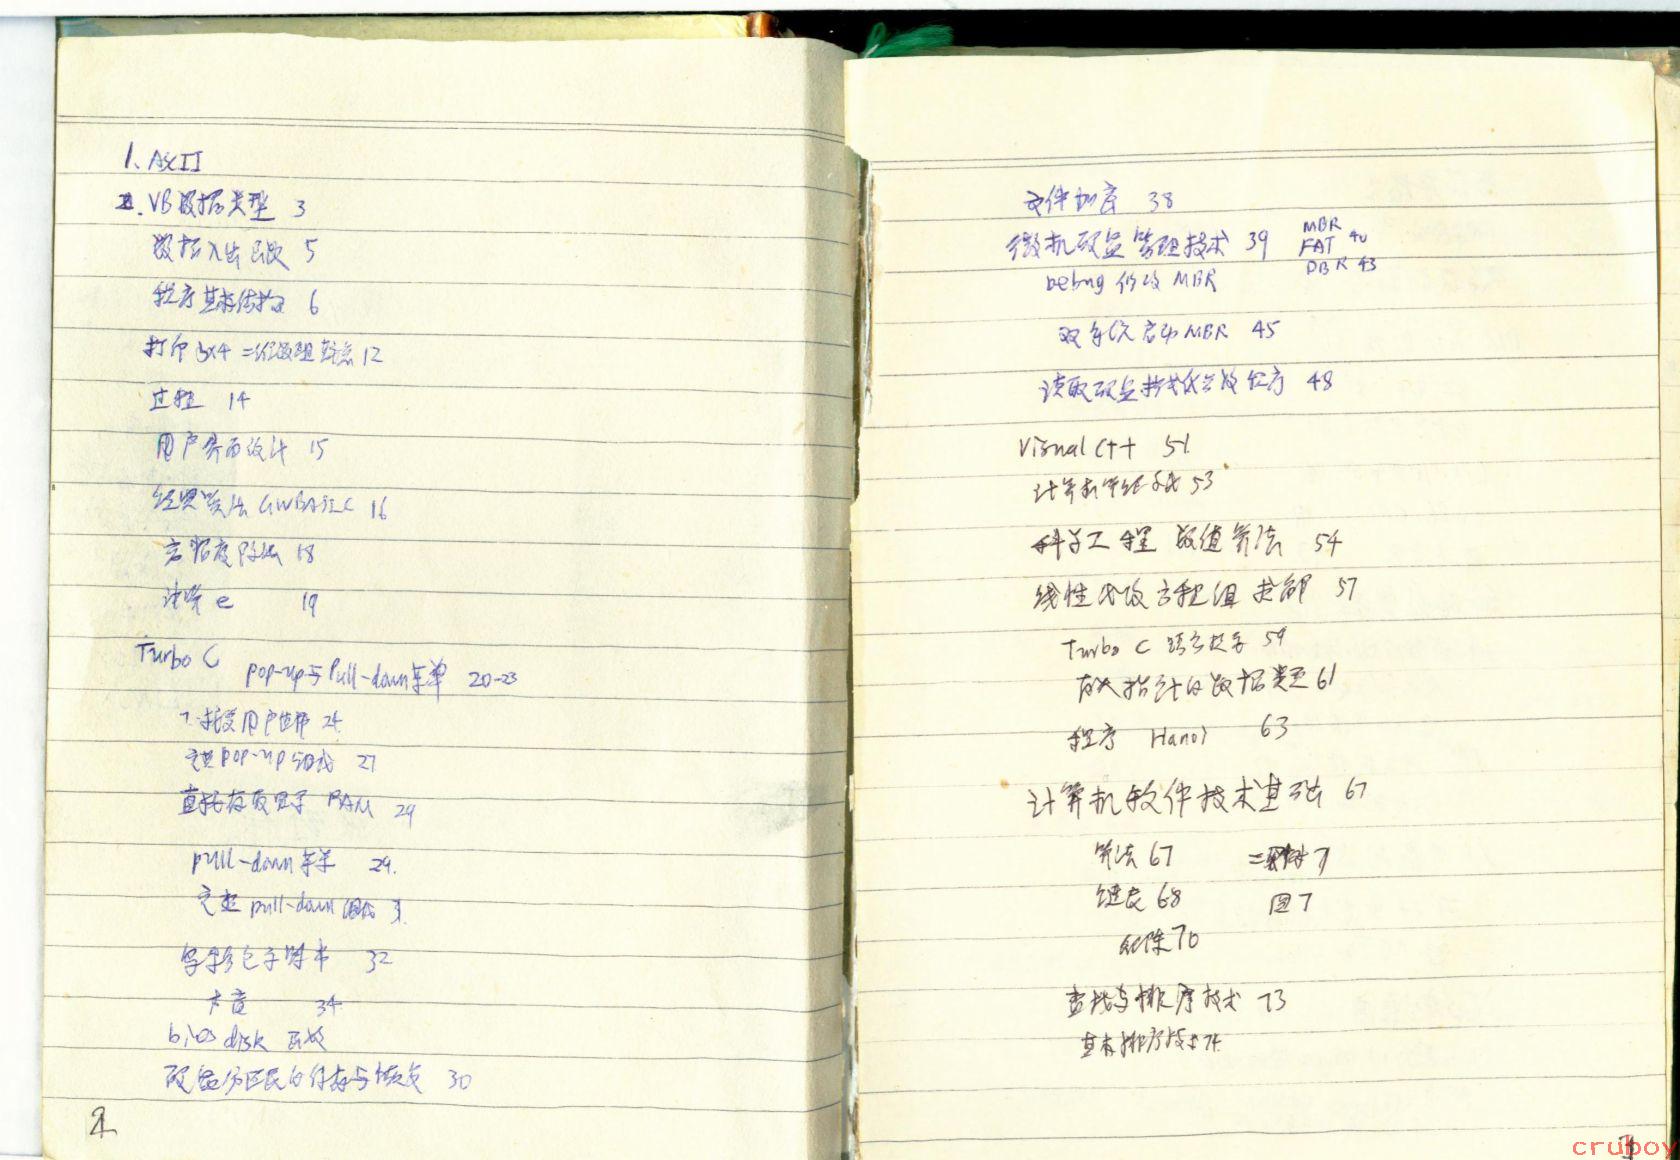 1. ASCII
2. VB数据类型 3
数据入出函数 5
程序基本结构 6
打印3×4二维数组 12
过程 14
用户界面设计 15
经典算法 GWBASIC 16
高精度 18
计算e 19
Turbo C
pop-up与Pull-down菜单 20-23
接受用户 24
pop-up 27
直接存取显示RAM 29
pull-down菜单 29.
pull-down
32
声音 34
bios disk 函数
硬盘分区表的保存与恢复 30
2
文件加密 38
微机硬盘管理技术 39
MBR
FAT 40
DBR 43
Debug 修改 MBR
双系统启动MBR 45
读取硬盘 程序 48
Visual C++ 51
计算机等级考试 53
科学工程 数值算法 54
线性代数方程组求解 57
Turbo C 59
有关指针的数据类型 61
程序 Hanoi 63
计算机软件技术基础 67
算法 67
二叉树 7
链表 68
图 7
矩阵 70
查找与排序技术 73
基本排序技术 74
cruboy